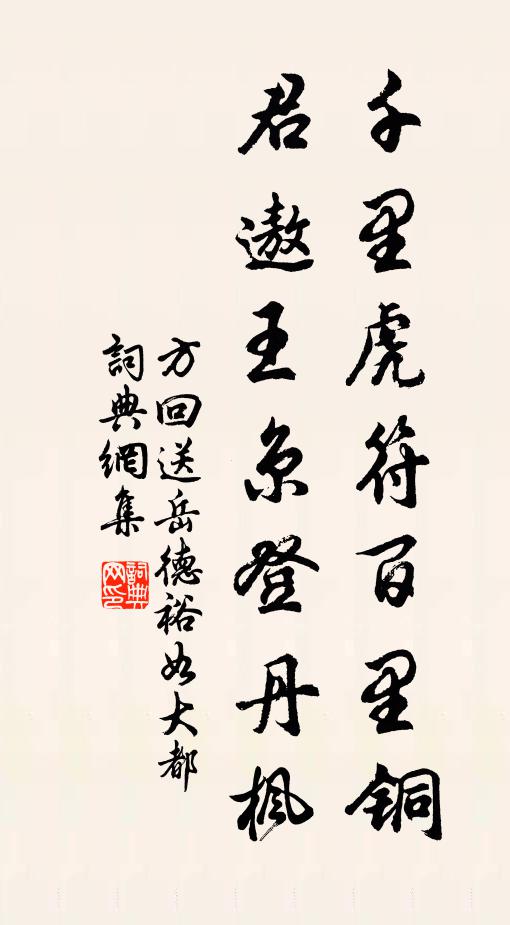 千里虎符百里铜
君遨王京登丹枫
方回送岳德裕如大都
詞典網集
詞典網印